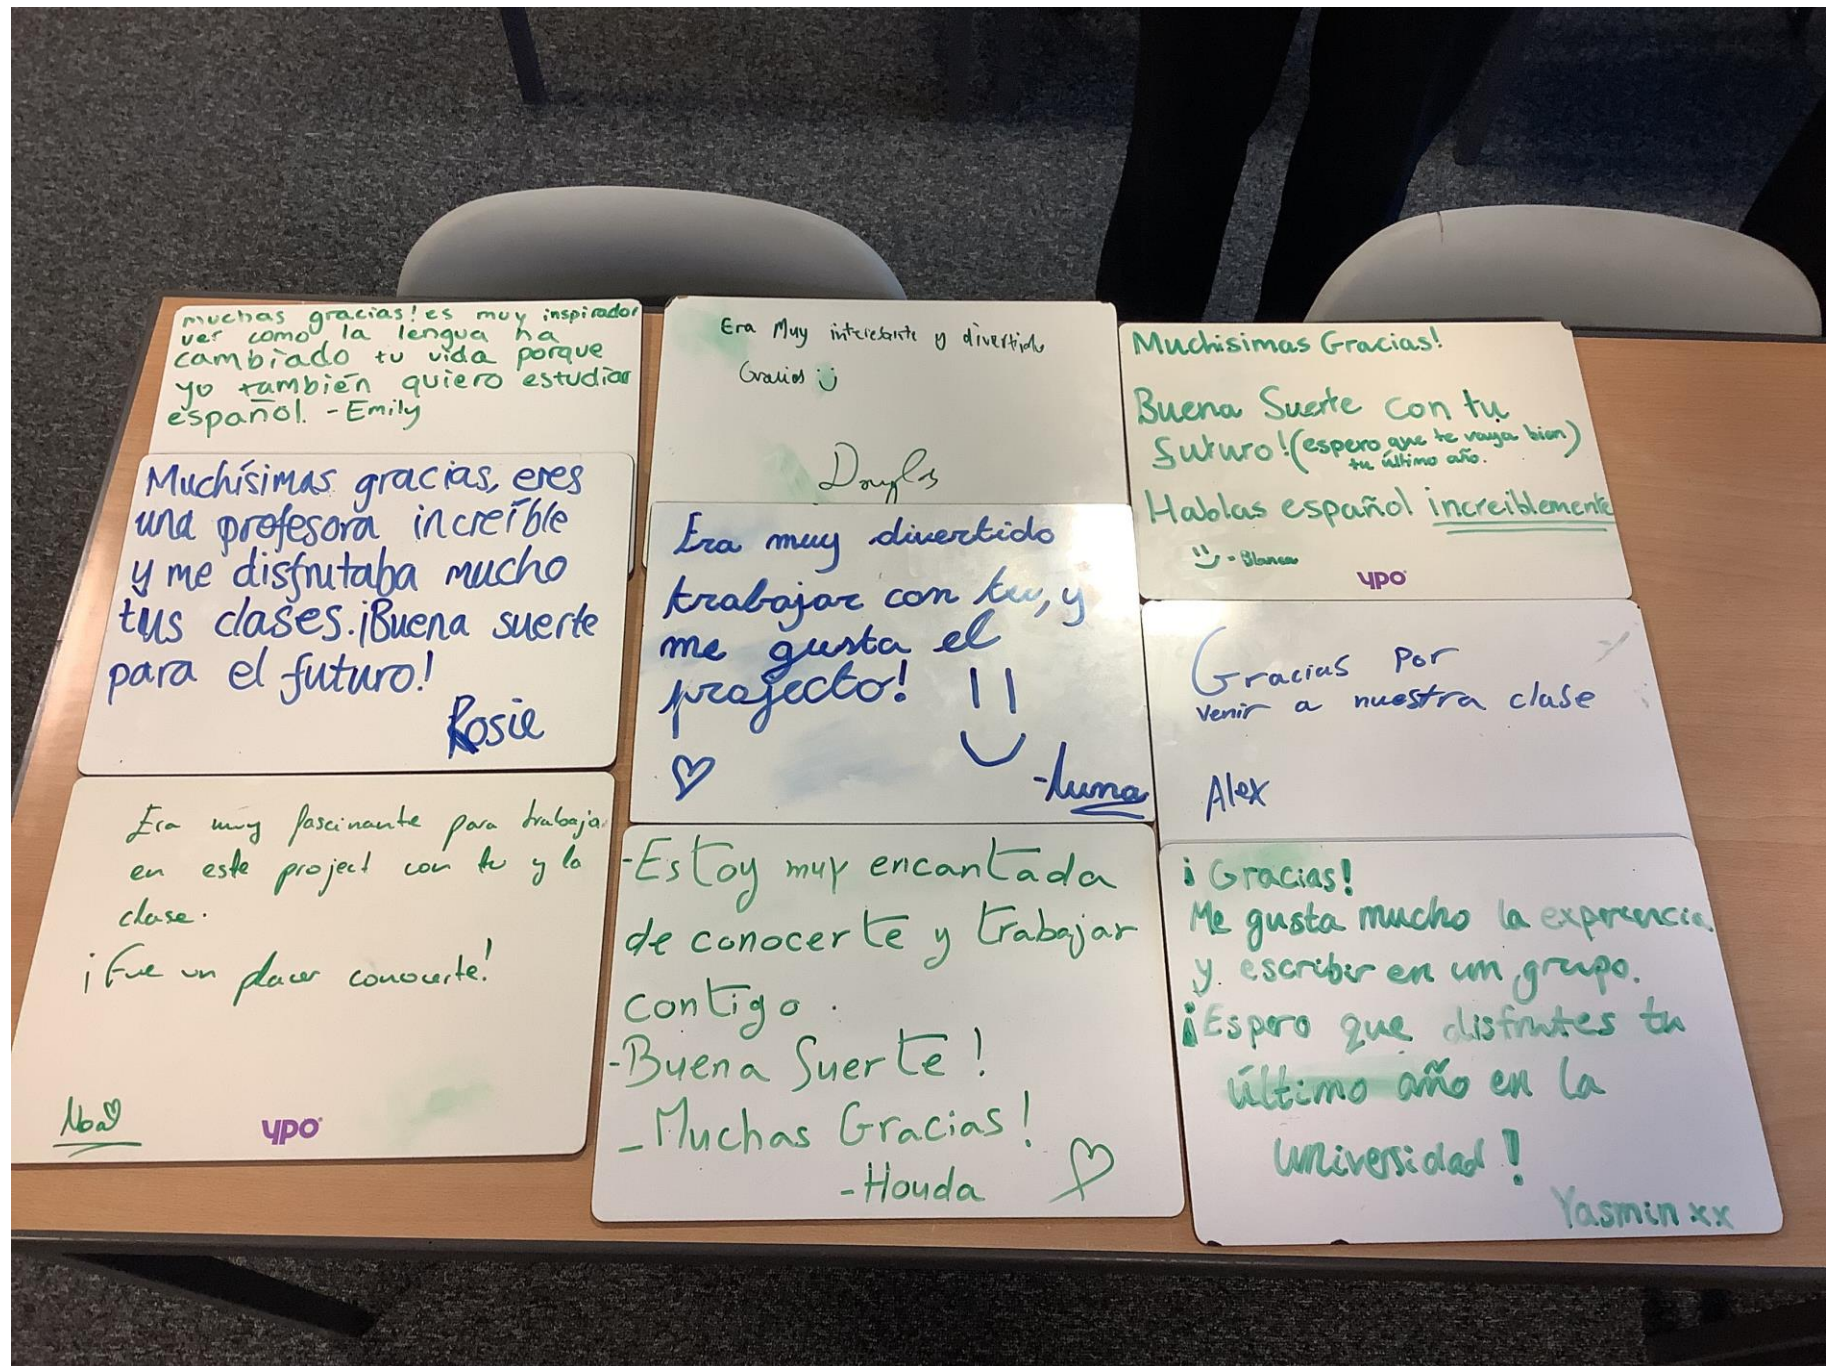 muchas gracias! es muy inspirador
ver como la lengua ha
cambiado tu vida porque
yo también quiero estudiar
español. - Emily
Muchísimas gracias, eres
una profesora increíble
y me disfrutaba mucho
tus clases. ¡Buena suerte
para el futuro!
Rosie
Era muy fascinante para trabajar
en este project con tu y la
clase.
¡Fue un placer conocerte!
Noa
ypo
Era Muy interesante y divertido
Gracias
Douglas
Era muy divertido
trabajar con tu, y
me gusta el
projecto!
-Luna
-Estoy muy encantada
de conocerte y trabajar
contigo.
-Buena Suerte!
-Muchas Gracias!
-Houda
Muchisimas Gracias!
Buena Suerte con tu
futuro! (espero que te vaya bien)
tu último año.
Hablas español increiblemente
- Blanca
ypo
Gracias por
venir a nuestra clase
Alex
¡Gracias!
Me gusta mucho la experencia
y escribir en un grupo.
¡Espero que disfrutes tu
último año en la
universidad!
Yasmin xx